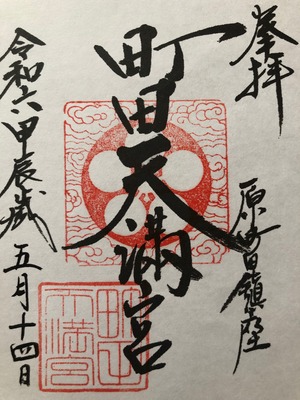 奉拝
原町田鎮座
町田天満宮
令和六甲辰歳 五月十四日
町田天満宮